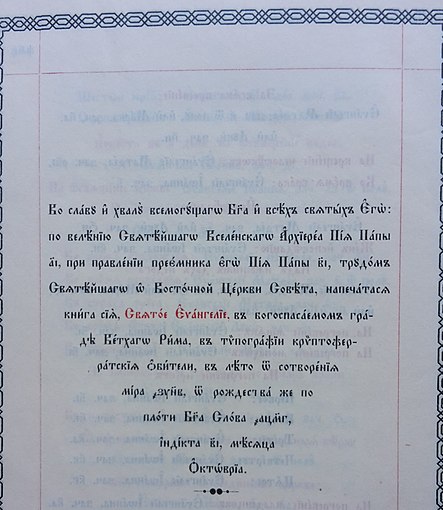 Во сла́вꙋ и҆ хвалꙋ̀ всемогꙋ́щагѡ Бг҃а и҆ всѣ́хъ свѧты́хъ Є҆гѡ̀:
по велѣ́нїю Свѧтѣ́йшагѡ Вселе́нскагѡ А҆рхїере́а Пі́а Па́пы
а҃і, при правле́нїи преє́мника є҆гѡ̀ Пі́а Па́пы в҃і, трꙋдо́мъ
Свѧтѣ́йшагѡ ѿ Восто́чнѣй Це́ркви Совѣ́та, напеча́тасѧ
кни́га сїѧ̀, Свѧто́е Є҆ѵа́нгелїе, въ богоспаса́емомъ гра́-
дѣ Ве́тхагѡ Ри́ма, въ тѷпогра́фїи крѷптофер-
ра́тскїѧ ѻ҆би́тели, въ лѣ́то ѿ сотворе́нїѧ
мі́ра ҂зꙋн҃в, ѿ рождества́ же по
пло́ти Бг҃а Сло́ва ҂ацм҃г,
і҆нді́кта в҃і, мѣ́сѧца
Ѻ҆ктѡ́врїа.